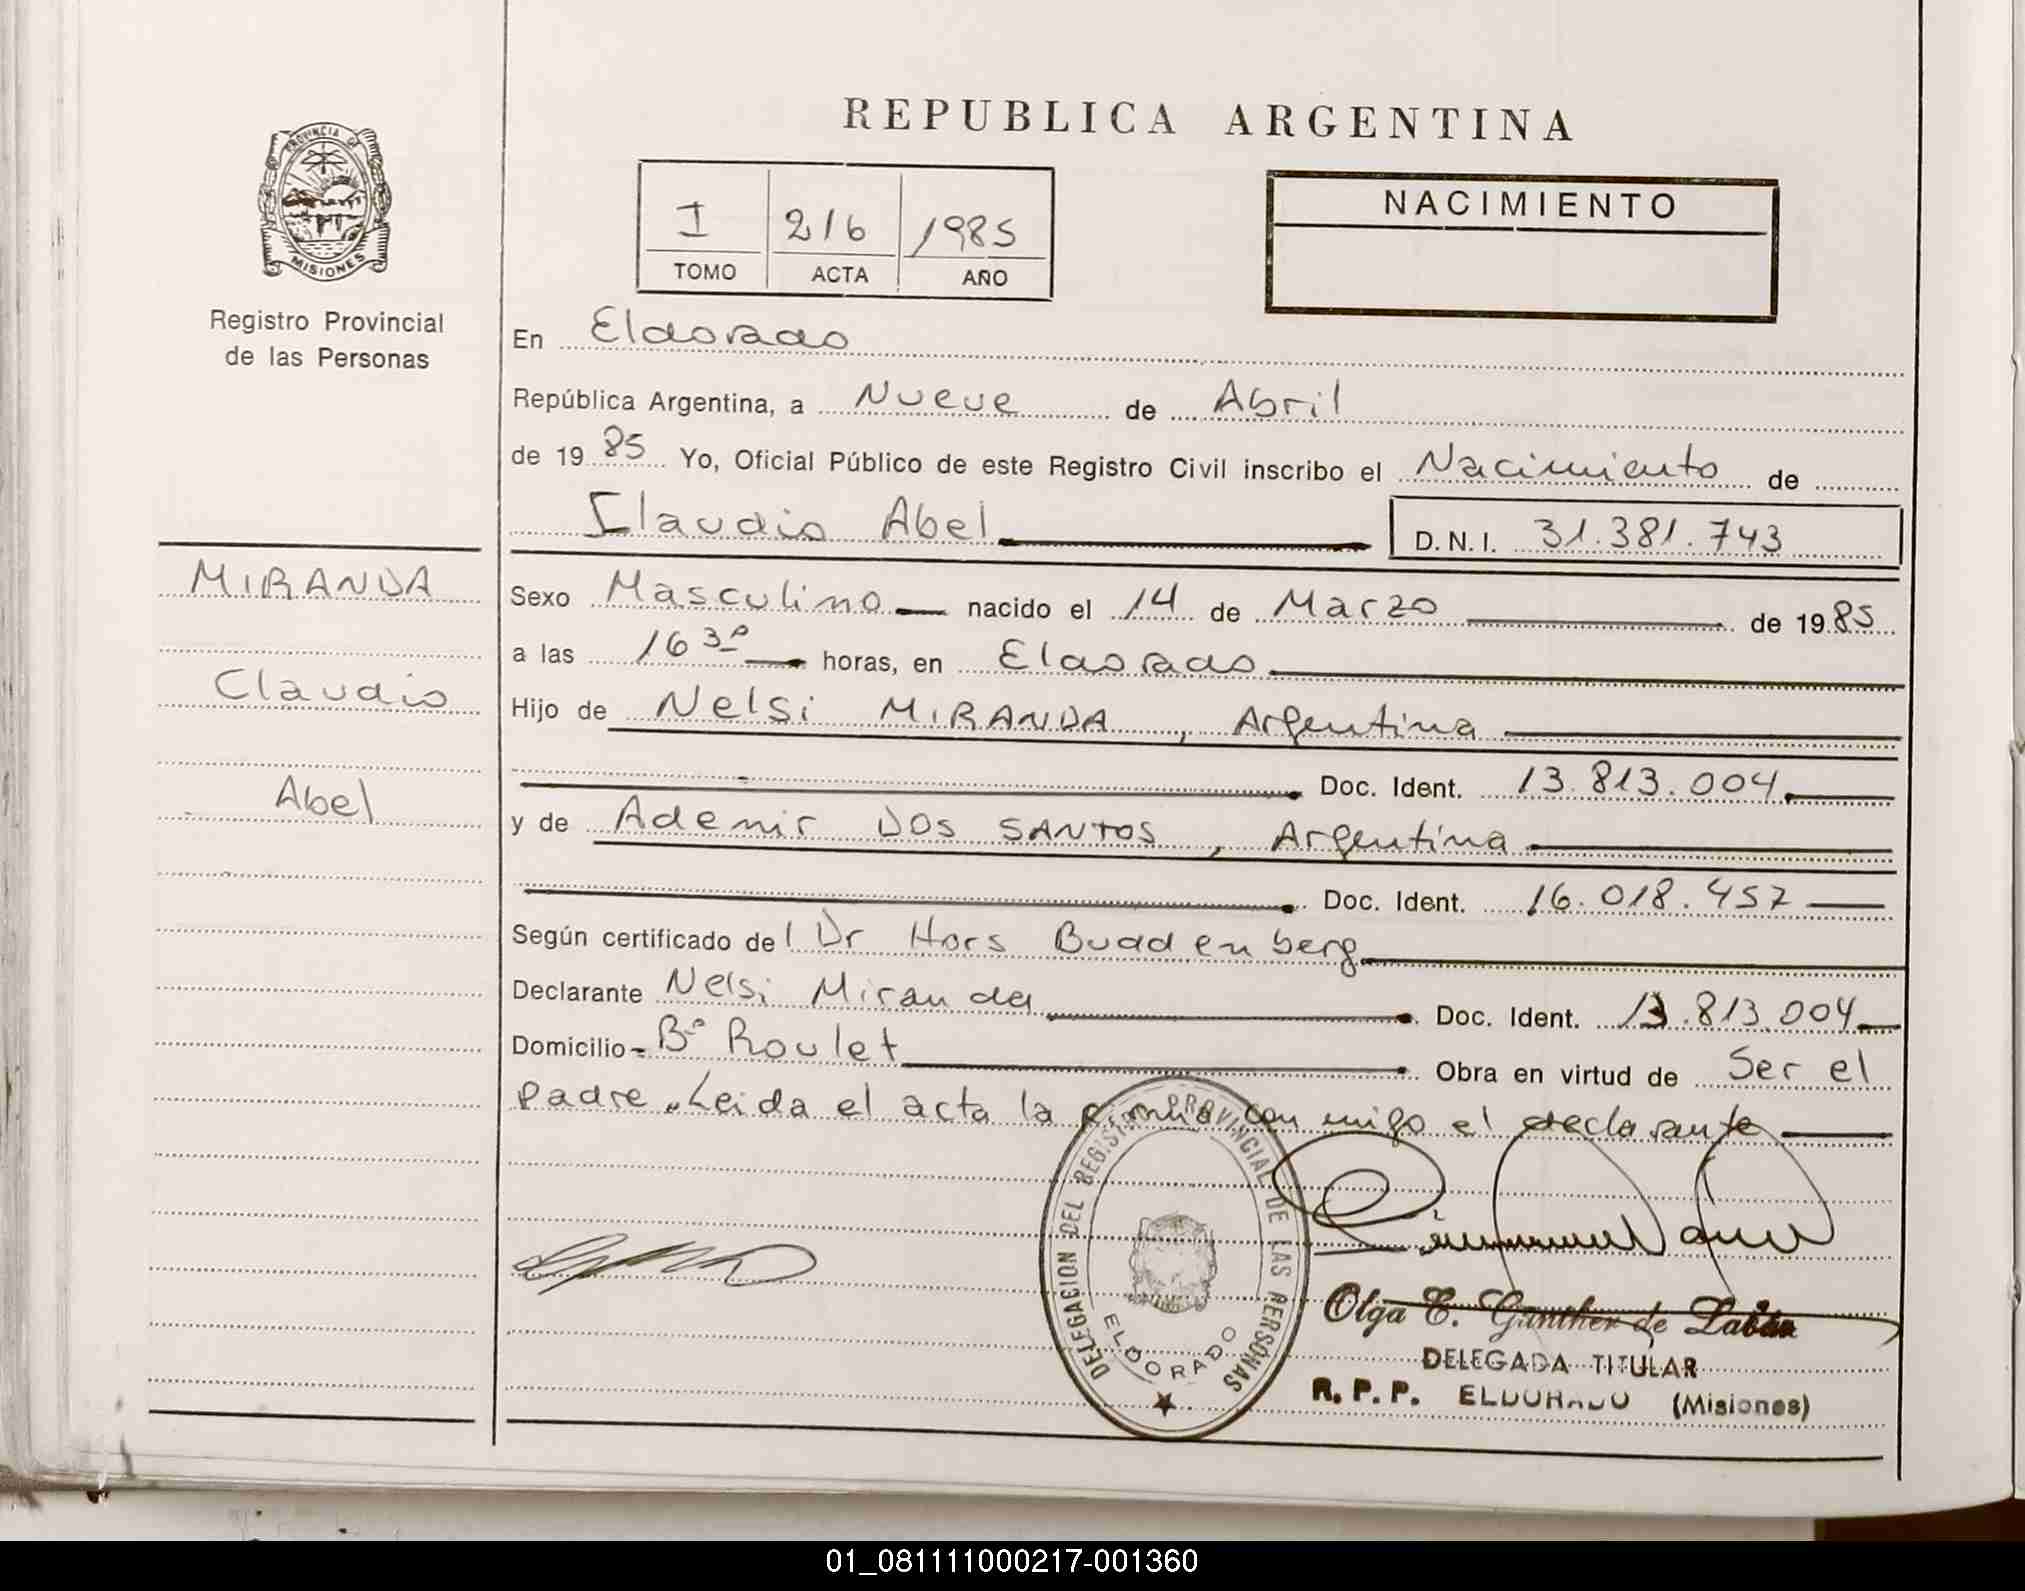 REPUBLICA ARGENTINA
PROVINCIA DE
MISIONES
Registro Provincial
de las Personas
I 216 1985
TOMO ACTA AÑO
NACIMIENTO
En Eldorado
República Argentina, a Nueve de Abril
de 1985 Yo, Oficial Público de este Registro Civil inscribo el Nacimiento de
Claudio Abel D.N.I. 31.381.743
MIRANDA
Claudio
Abel
Sexo Masculino nacido el 14 de Marzo de 1985
a las 16 30 horas, en Eldorado
Hijo de Nelsi MIRANDA, Argentina
Doc. Ident. 13.813.004
y de Ademir DOS SANTOS, Argentina
Doc. Ident. 16.018.457
Según certificado del Dr Hors Buddenberg
Declarante Nelsi Miranda Doc. Ident. 13.813.004
Domicilio Bº Roulet Obra en virtud de Ser el
padre. Leida el acta la firma con migo el declarante
DELEGACION DEL REGISTRO PROVINCIAL DE LAS PERSONAS
ELDORADO
Olga E. Günther de
DELEGADA TITULAR
R. P. P. ELDORADO (Misiones)
01_081111000217-001360